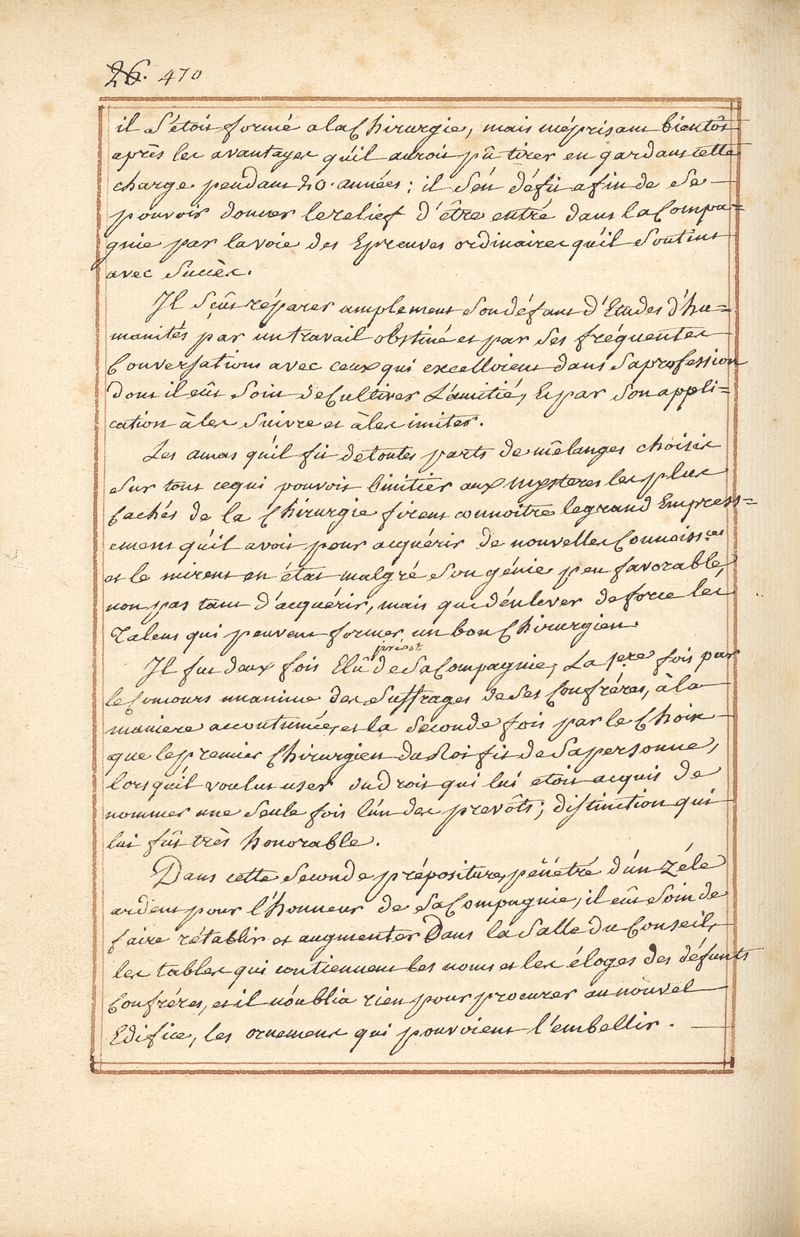 26. 470
il s'étoit formé a la Chirurgie, mais méprisant bientôt
après les avantages qu'il auroit pû tirer en gardant cette
charge pendant 20. années; il s'en défit afin de se
pouvoir donner le relief d'être entré dans la Compa=
gnie par la voie des Epreuves ordinaires qu'il soutint
avec succès.
Il sçût réparer amplement son défaut d'Etudes d'hu=
manités par un travail obstiné et par ses fréquentes
Conversations avec ceux qui excelloient dans sa profession
dont il eût soin de Cultiver L'amitié, Et par son appli=
cation à les suivre et à les imiter.
Les amas qu'il fit de toutes parts de mêlanges choisis
sur tout ce qui pouvoit l'initier aux mysteres les plus
Cachés de la Chirurgie firent connoitre le grand Empress=
ement qu'il avoit pour acquérir de nouvelles Connoiss.ces
et le mirent en état malgré son génie peu favorable,
non pas tant d'acquérir, mais que d'enlever de force les
Talens qui peuvent former un bon Chirurgien.
prévot
Il fut deux fois Elû de sa Compagnie, La 1.ere fois par
le Concours unanime des suffrages de ses Confréres, à la
maniere accoutumée, et la seconde fois par le Choix
que le premier Chirurgien du Roi fit de sa personne,
lorsqu'il voulut user du droit qui lui etoit acquis de
nommer une seule fois l'un des prevôts; distinction qui
lui fût très honorable.
Dans cette seconde prépositure, pénétré d'un zéle
ardent pour l'honneur de sa Compagnie, il eût soin de
faire rétablir et augmenter Dans la salle du Conseil,
les tables qui contiennent les noms et les éloges des défunts
Confréres, et il n'oublia rien pour procurer au nouvel
Edifice, les ornemens qui pouvoient l'embellir.